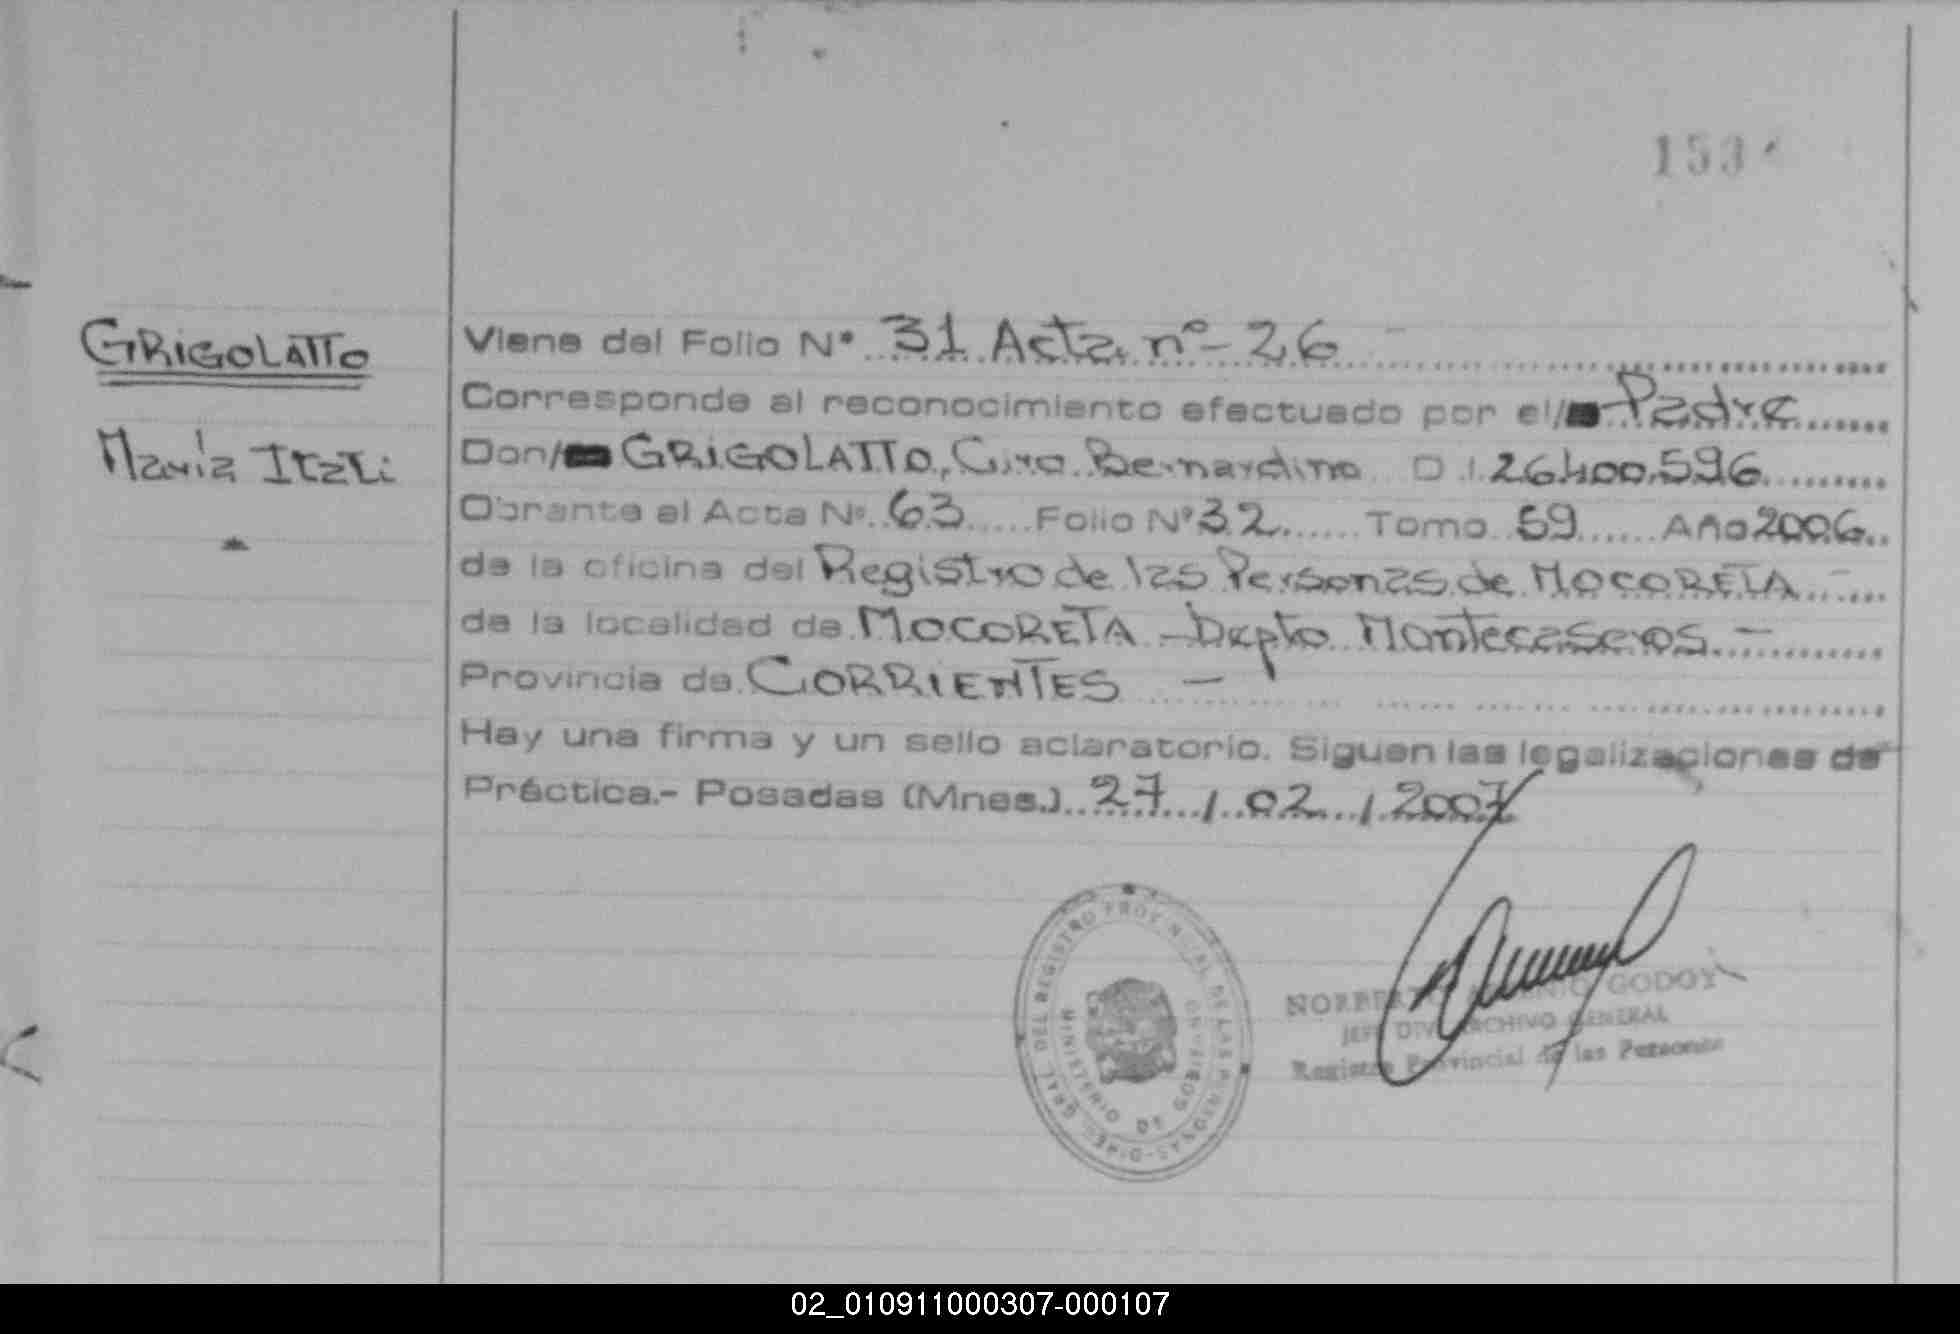 153
GRIGOLATTO
María Itatí
Viene del Folio Nº 31 Acta nº 26
Corresponde al reconocimiento efectuado por el/ Padre
Don/ GRIGOLATTO, Ciro Bernardino D.I. 26.400.596
Obrante al Acta Nº 63 Folio Nº 32 Tomo 59 Año 2006
de la oficina del Registro de las Personas de MOCORETA.-
de la localidad de MOCORETA - Depto Montecaseros.-
Provincia de CORRIENTES -
Hay una firma y un sello aclaratorio. Siguen las legalizaciones de
Práctica.- Posadas (Mnes.) 27 / 02 / 2007
DIREC. GRAL. DEL REGISTRO PROVINCIAL DE LAS PERSONAS
MINISTERIO DE GOBIERNO
NORBERTO GODOY
JEFE DIV. ARCHIVO GENERAL
Registro Provincial de las Personas
02_010911000307-000107